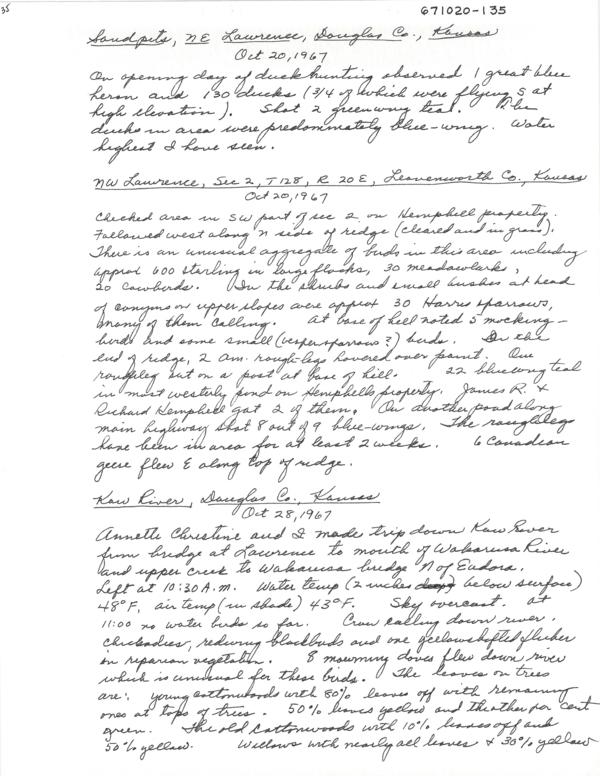 35
671020-135
Sandpits, NE Lawrence, Douglas Co., Kansas
Oct 20, 1967
On opening day of duck hunting observed 1 great blue
heron and 130 ducks (3/4 of which were flying S at
high elevation). Shot 2 greenwing teal. The
ducks in area were predominately blue-wing. Water
highest I have seen.
NW Lawrence, Sec 2, T12S, R 20E, Leavenworth Co., Kansas
Oct 20, 1967
Checked area in SW part of sec 2 on Hemphill property.
Followed west along N side of ridge (cleared and in grass).
There is an unusual aggregate of birds in this area including
approx 600 starling in large flocks, 30 meadowlarks,
20 cowbirds. In the shrubs and small bushes at head
of canyons on upper slopes were approx 30 Harris sparrows,
many of them calling. At base of hill noted 5 mocking-
birds and some small (vesper sparrows?) birds. On the
end of ridge, 2 am. rough-legs hovered over point. One
roughleg sat on a post at base of hill. 22 bluewing teal
in most westerly pond on Hemphills property. James R. &
Richard Hemphill got 2 of them. On another pond along
main highway shot 8 out of 9 blue-wings. The roughlegs
have been in area for at least 2 weeks. 6 Canadian
geese flew E along top of ridge.
Kaw River, Douglas Co., Kansas
Oct 28, 1967
Annette Christine and I made trip down Kaw River
from bridge at Lawrence to mouth of Wakarusa River
and upper creek to Wakarusa bridge N of Eudora.
Left at 10:30 A.M. Water temp (2 inches below surface)
48°F, air temp (in shade) 43°F. Sky overcast. At
11:00 no water birds so far. Crow calling down river.
Chickadees, redwing blackbirds and one yellowshafted flicker
in reparian vegetation. 8 mourning doves flew down river
which is unusual for these birds. The leaves on trees
are: young cottonwoods with 80% leaves off with remaining
ones at tops of trees. 50% leaves yellow and the other per cent
green. The old cottonwoods with 10% leaves off and
50% yellow. Willows with nearly all leaves & 30% yellow